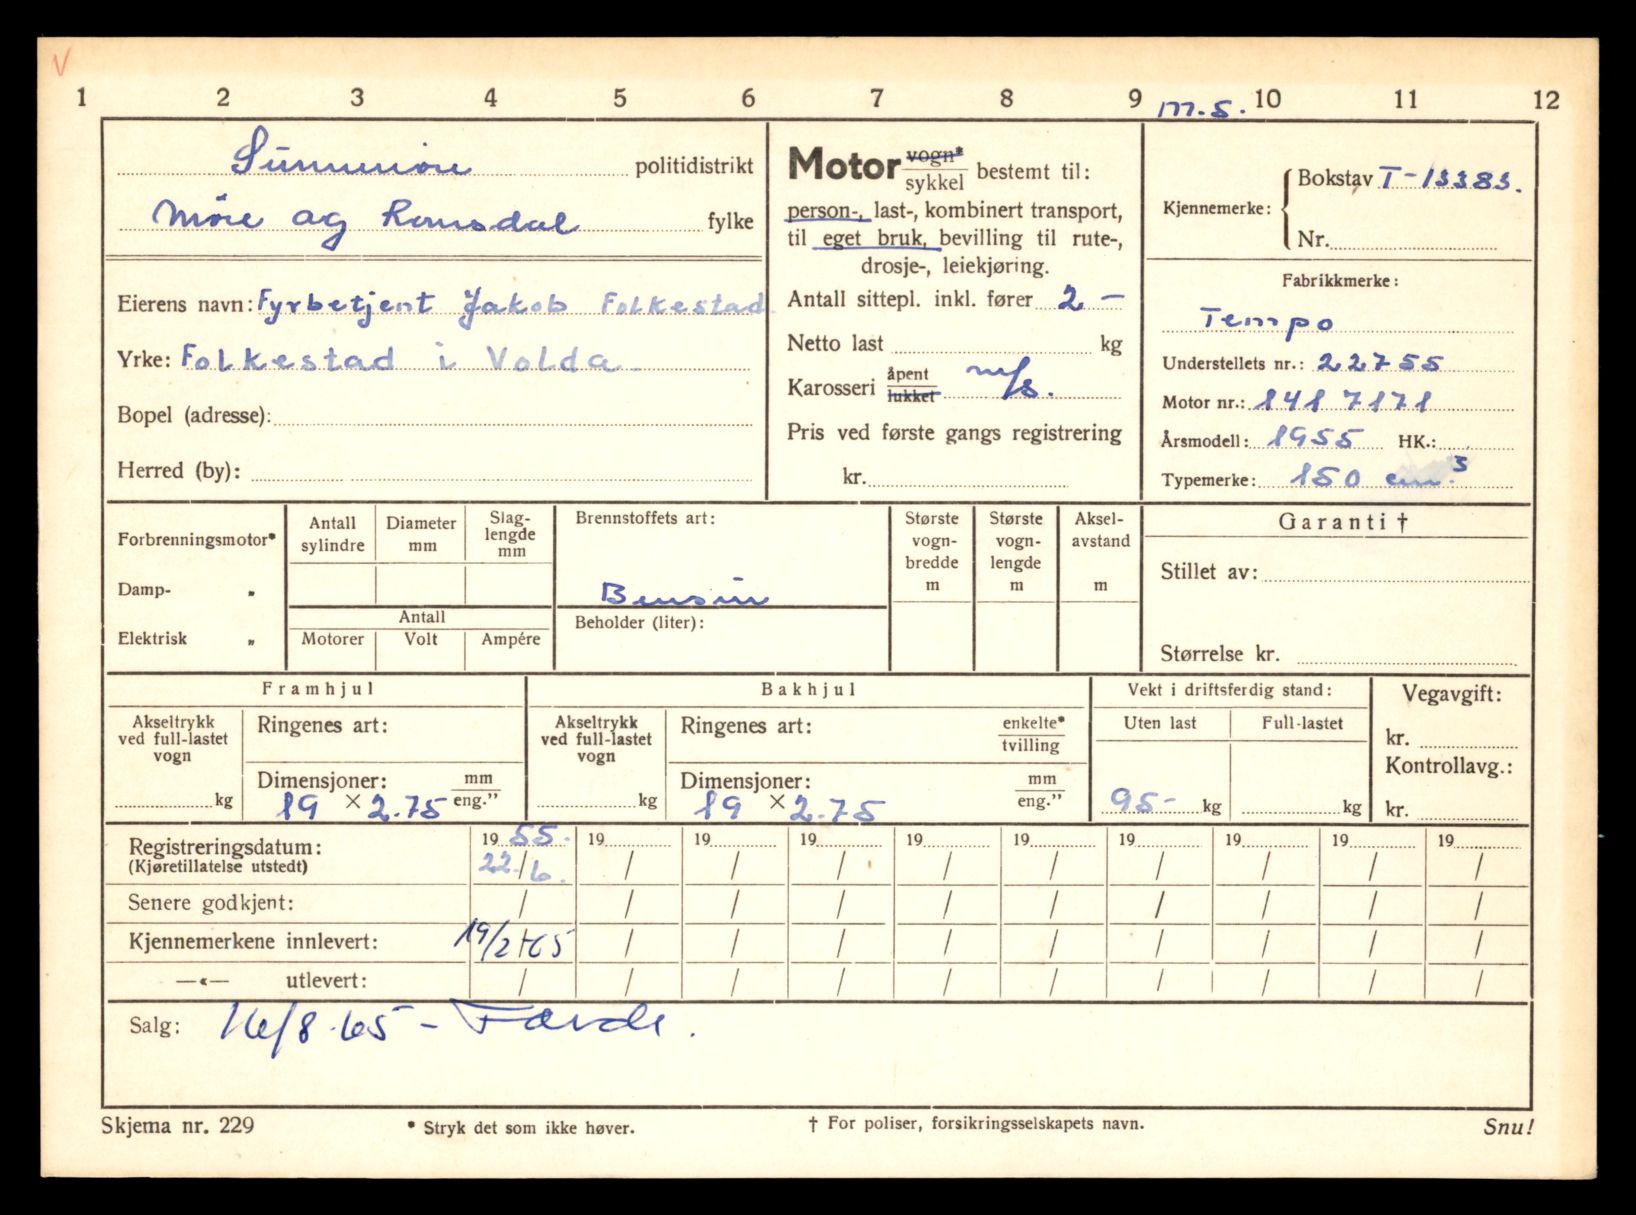 V
1 2 3 4 5 6 7 8 9 10 11 12
m.s.
Sunnmøre politidistrikt
Møre og Romsdal fylke
Eierens navn: Fyrbetjent Jakob Folkestad
Yrke: Folkestad i Volda.
Bopel (adresse):
Herred (by):
Motor vogn*
sykkel bestemt til:
person-, last-, kombinert transport,
til eget bruk, bevilling til rute-,
drosje-, leiekjøring.
Antall sittepl. inkl. fører 2 —
Netto last kg
Karosseri åpent
lukket m/s.
Pris ved første gangs registrering
kr.
Kjennemerke: Bokstav T-13383.
Nr.
Fabrikkmerke:
Tempo
Understellets nr.: 22755
Motor nr.: 1417171
Årsmodell: 1955 HK.:
Typemerke: 150 cm.3
Forbrenningsmotor*
Damp- "
Elektrisk "
Antall sylindre
Diameter mm
Slag-lengde mm
Antall
Motorer Volt Ampére
Brennstoffets art:
Bensin
Beholder (liter):
Største vogn-bredde m
Største vogn-lengde m
Aksel-avstand m
Garanti †
Stillet av:
Størrelse kr.
Framhjul
Akseltrykk ved full-lastet vogn
kg
Ringenes art:
Dimensjoner: mm
19 × 2.75 eng."
Bakhjul
Akseltrykk ved full-lastet vogn
kg
Ringenes art: enkelte*
tvilling
Dimensjoner: mm
19 × 2.75 eng."
Vekt i driftsferdig stand:
Uten last Full-lastet
95- kg kg
Vegavgift:
kr.
Kontrollavg.:
kr.
Registreringsdatum: 19 55. 19 19 19 19 19 19 19 19 19
(Kjøretillatelse utstedt) 22/6. / / / / / / / / /
Senere godkjent: / / / / / / / / / /
Kjennemerkene innlevert: 19/2-65 / / / / / / / / /
—«— utlevert: / / / / / / / / / /
Salg: 16/8-65 - Førde.
Skjema nr. 229 * Stryk det som ikke høver. † For poliser, forsikringsselskapets navn. Snu!